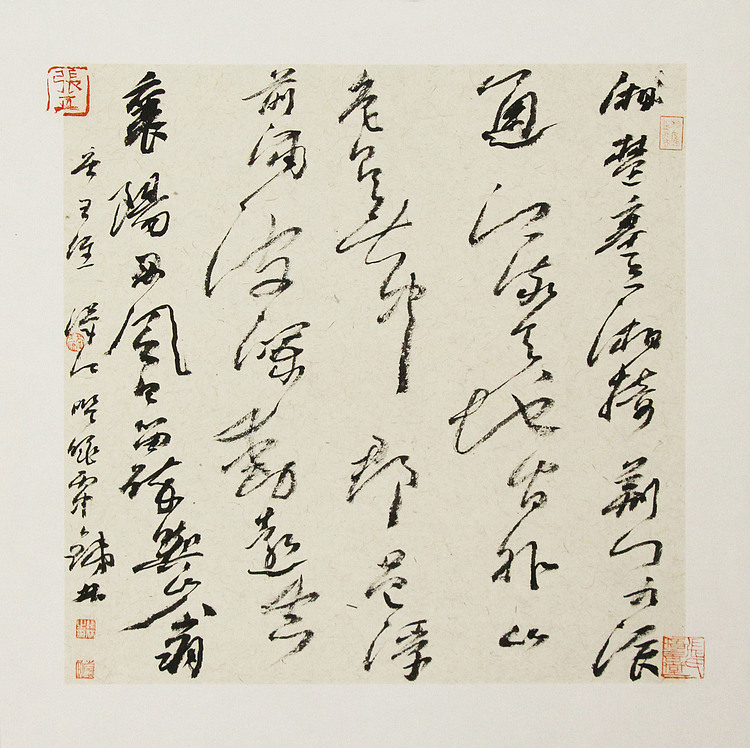 湘楚塞三湘接荊門九派
通江流天地外山
色有無中郡邑浮
前浦波瀾動遠空
襄陽好風日留醉與山翁
王維漢江臨眺